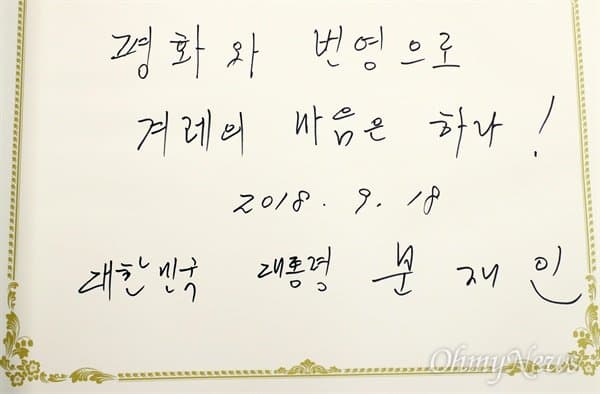 평화와 번영으로
겨레의 마음은 하나!
2018. 9. 18
대한민국 대통령 문재인
OhmyNews